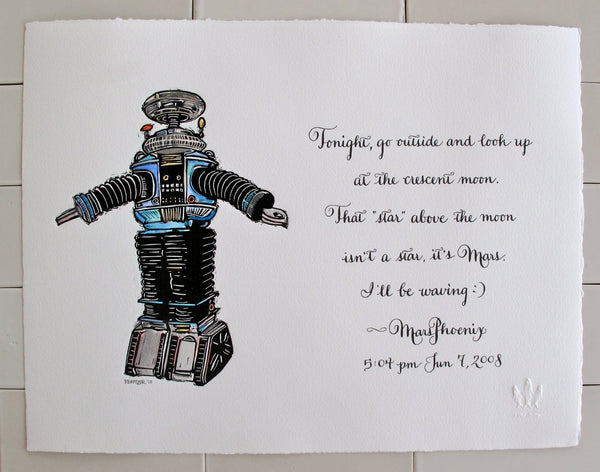 Tonight, go outside and look up
at the crescent moon.
That "star" above the moon
isn't a star, it's Mars.
I'll be waving :)
~ MarsPhoenix
5:04 pm Jun 7, 2008